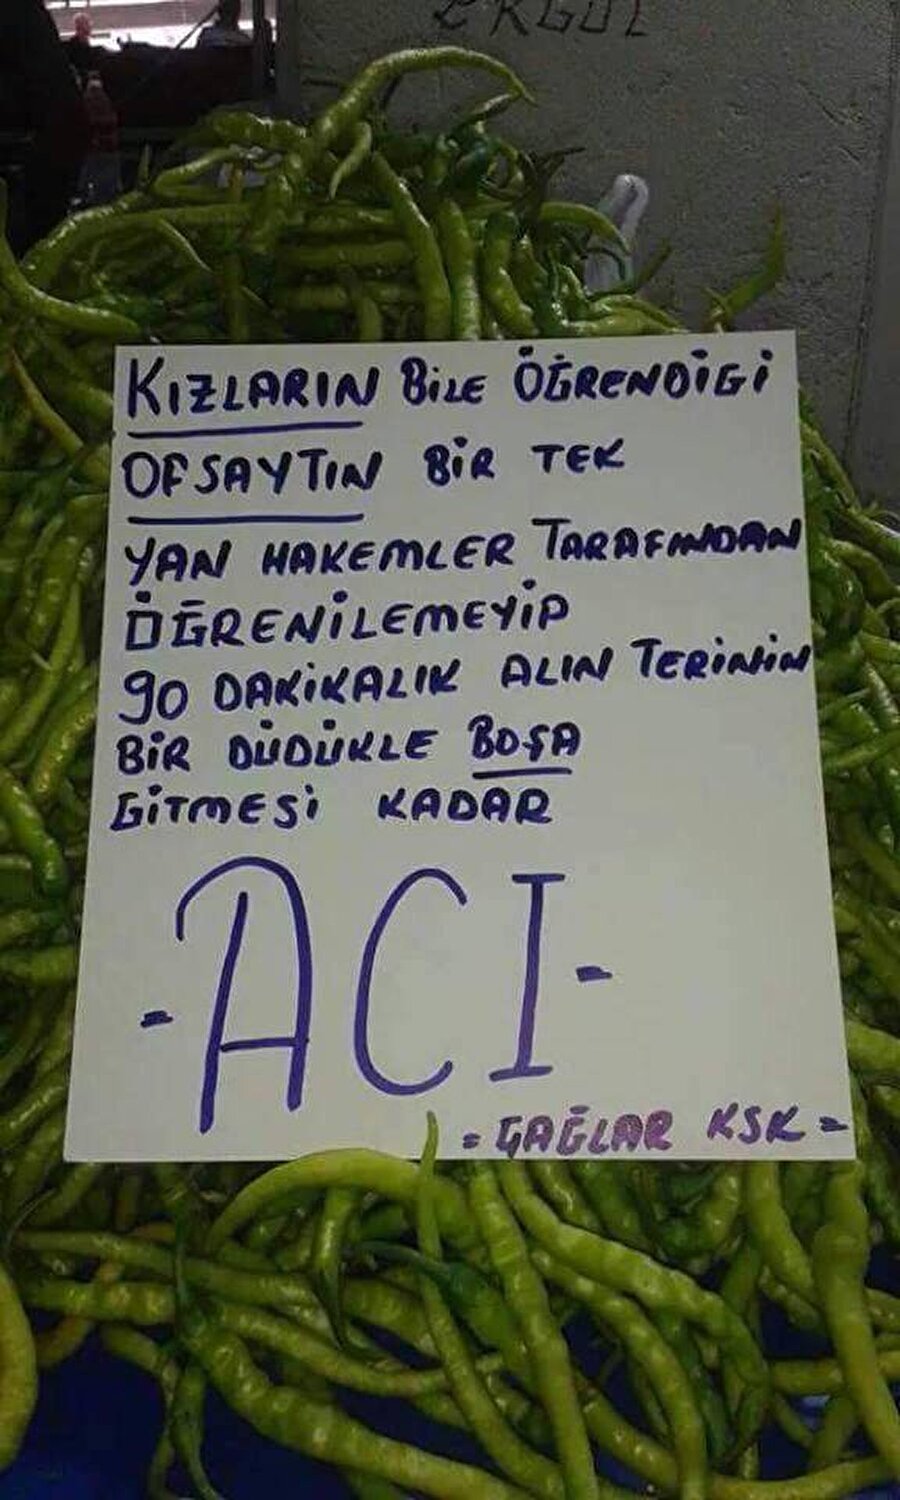 ERGÜL
KIZLARIN BİLE ÖĞRENDİGİ
OFSAYTIN BİR TEK
YAN HAKEMLER TARAFINDAN
ÖĞRENİLEMEYİP
90 DAKİKALIK ALIN TERİNİN
BİR DÜDÜKLE BOŞA
GİTMESİ KADAR
-ACI-
=ÇAĞLAR KSK=